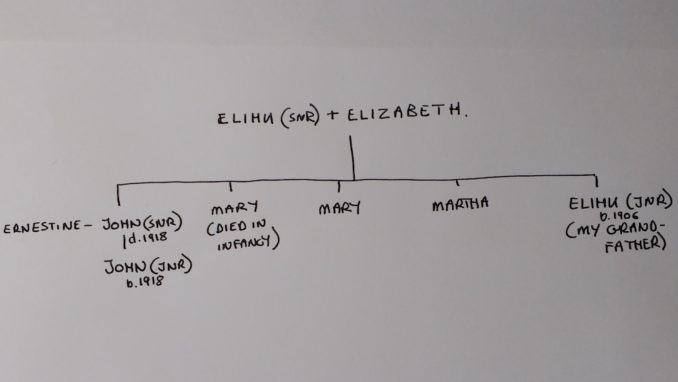 ELIHU (SNR) + ELIZABETH.
ERNESTINE - JOHN (SNR)
d. 1918
JOHN (JNR)
b. 1918
MARY
(DIED IN
INFANCY)
MARY
MARTHA
ELIHU (JNR)
b. 1906
(MY GRAND-
FATHER)